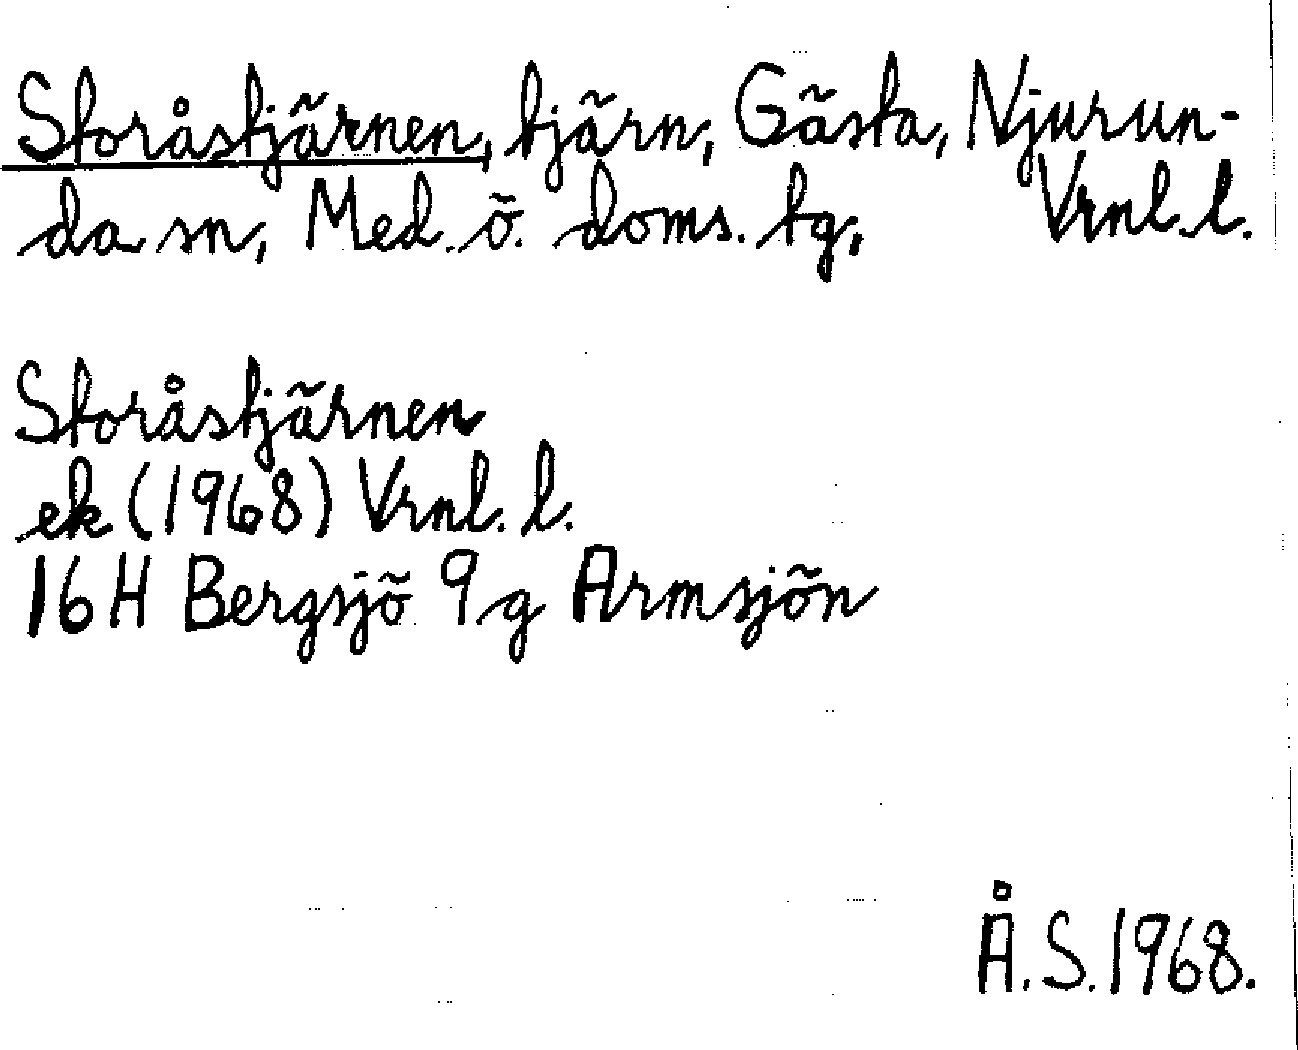 Storåstjärnen, tjärn, Gästa, Njurun-
da sn, Med. ö. doms. tg, Vrnl. l.
Storåstjärnen
ek (1968) Vrnl. l.
16H Bergsjö 9g Armsjön
Å. S. 1968.